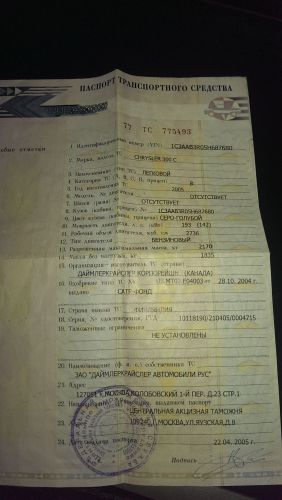 ПАСПОРТ ТРАНСПОРТНОГО СРЕДСТВА
77 ТС 775493
1. Идентификационный номер (VIN) 1C3AAB3R05H687680
2. Марка, модель ТС CHRYSLER 300 C
3. Наименование ТС ЛЕГКОВОЙ
4. Категория ТС B
5. Год изготовления ТС 2005
6. Модель, № двигателя ОТСУТСТВУЕТ
7. Шасси (рама) № ОТСУТСТВУЕТ
8. Кузов № 1C3AAB3R05H687680
9. Цвет СЕРО-ГОЛУБОЙ
10. Мощность двигателя, л. с. (кВт) 193 (142)
11. Рабочий объем двигателя, куб. см 2736
12. Тип двигателя БЕНЗИНОВЫЙ
13. Разрешенная максимальная масса, кг 2170
14. Масса без нагрузки, кг 1835
15. Организация—изготовитель ТС (страна)
ДАЙМЛЕРКРАЙСЛЕР КОРПОРЕЙШН (КАНАДА)
16. Одобрение типа ТС № 28.10.2004 г.
выдано САТР-ФОНД
17. Страна вывоза ТС
18. Серия, № ТД, 10118190/210405/0004715
19. Таможенные ограничения
НЕ УСТАНОВЛЕНЫ
20. Наименование (ф. и. о.) собственника ТС
ЗАО "ДАЙМЛЕРКРАЙСЛЕР АВТОМОБИЛИ РУС"
21. Адрес
МОСКВА, КОЛОБОВСКИЙ 1-Й ПЕР. Д.23 СТР.1
22. Наименование организации, выдавшей паспорт
ЦЕНТРАЛЬНАЯ АКЦИЗНАЯ ТАМОЖНЯ
23. Адрес 109240, Г.МОСКВА, УЛ.ЯУЗСКАЯ, Д.8
24. Дата выдачи паспорта 22.04.2005 г.
Подпись